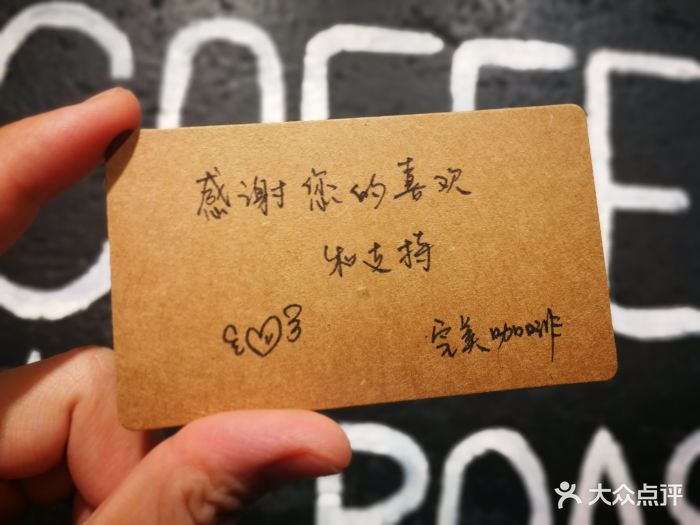 COFFEE
感谢您的喜欢
和支持
完美咖啡
ROAS
大众点评